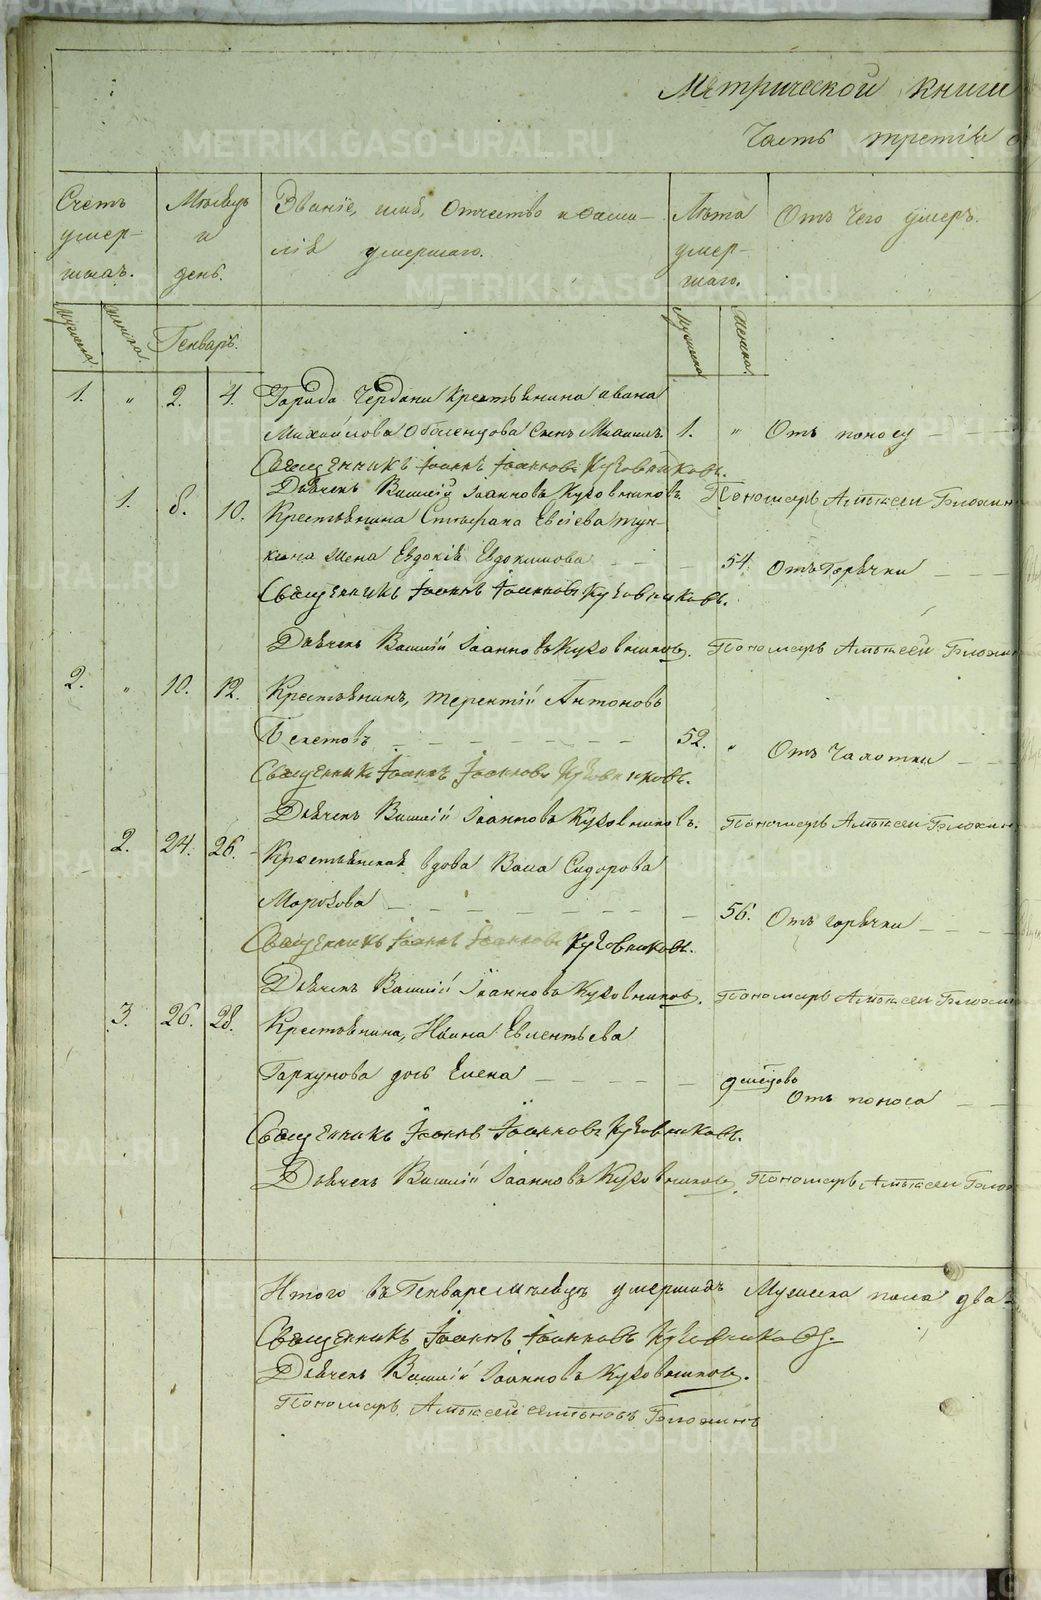 Метрической книги
Часть третія о
Счетъ умер-шихъ.
Мѣсяцъ и день.
Званіе, имя, отчество и фами-
лія умершаго.
Лѣта умер-шаго.
Отъ чего умеръ.
Мужеска
Женска.
Генварь.
Мужеска
Женска.
1. " 2. 4. Города Чердыни крестьянина Ивана
Михайлова Оболенцова сынъ Михаилъ. 1. " Отъ поносу
Священникъ Іоаннъ Іоанновъ Кузовниковъ.
Дьячекъ Василій Іоанновъ Кузовниковъ. Пономарь Алексей
1. 8. 10. Крестьянина Стефана Евсіева
жена Евдокія Евдокимова 54. Отъ горячки
Священникъ Іоаннъ Іоанновъ Кузовниковъ.
Дьячекъ Василій Іоанновъ Кузовниковъ. Пономарь Алексей
2. " 10. 12. Крестьянинъ, Терентій Антоновъ
Бекетовъ 52. " Отъ чахотки
Священникъ Іоаннъ Іоанновъ Кузовниковъ.
Дьячекъ Василій Іоанновъ Кузовниковъ. Пономарь Алексей
2. 24. 26. Крестьянская вдова Васа Сидорова
Морозова 56. Отъ горячки
Священникъ Іоаннъ Іоанновъ Кузовниковъ.
Дьячекъ Василій Іоанновъ Кузовниковъ. Пономарь Алексей
3. 26. 28. Крестьянина, Ивана Евлентьева
Гаркунова дочь Елена
Отъ поноса
Священникъ Іоаннъ Іоанновъ Кузовниковъ.
Дьячекъ Василій Іоанновъ Кузовниковъ. Пономарь Алексей
Итого въ Генваре мѣсяцѣ умершихъ Мужеска пола два
Священникъ Іоаннъ Іоанновъ Кузовниковъ.
Дьячекъ Василій Іоанновъ Кузовниковъ.
Пономарь Алексей
METRIKI.GASO-URAL.RU